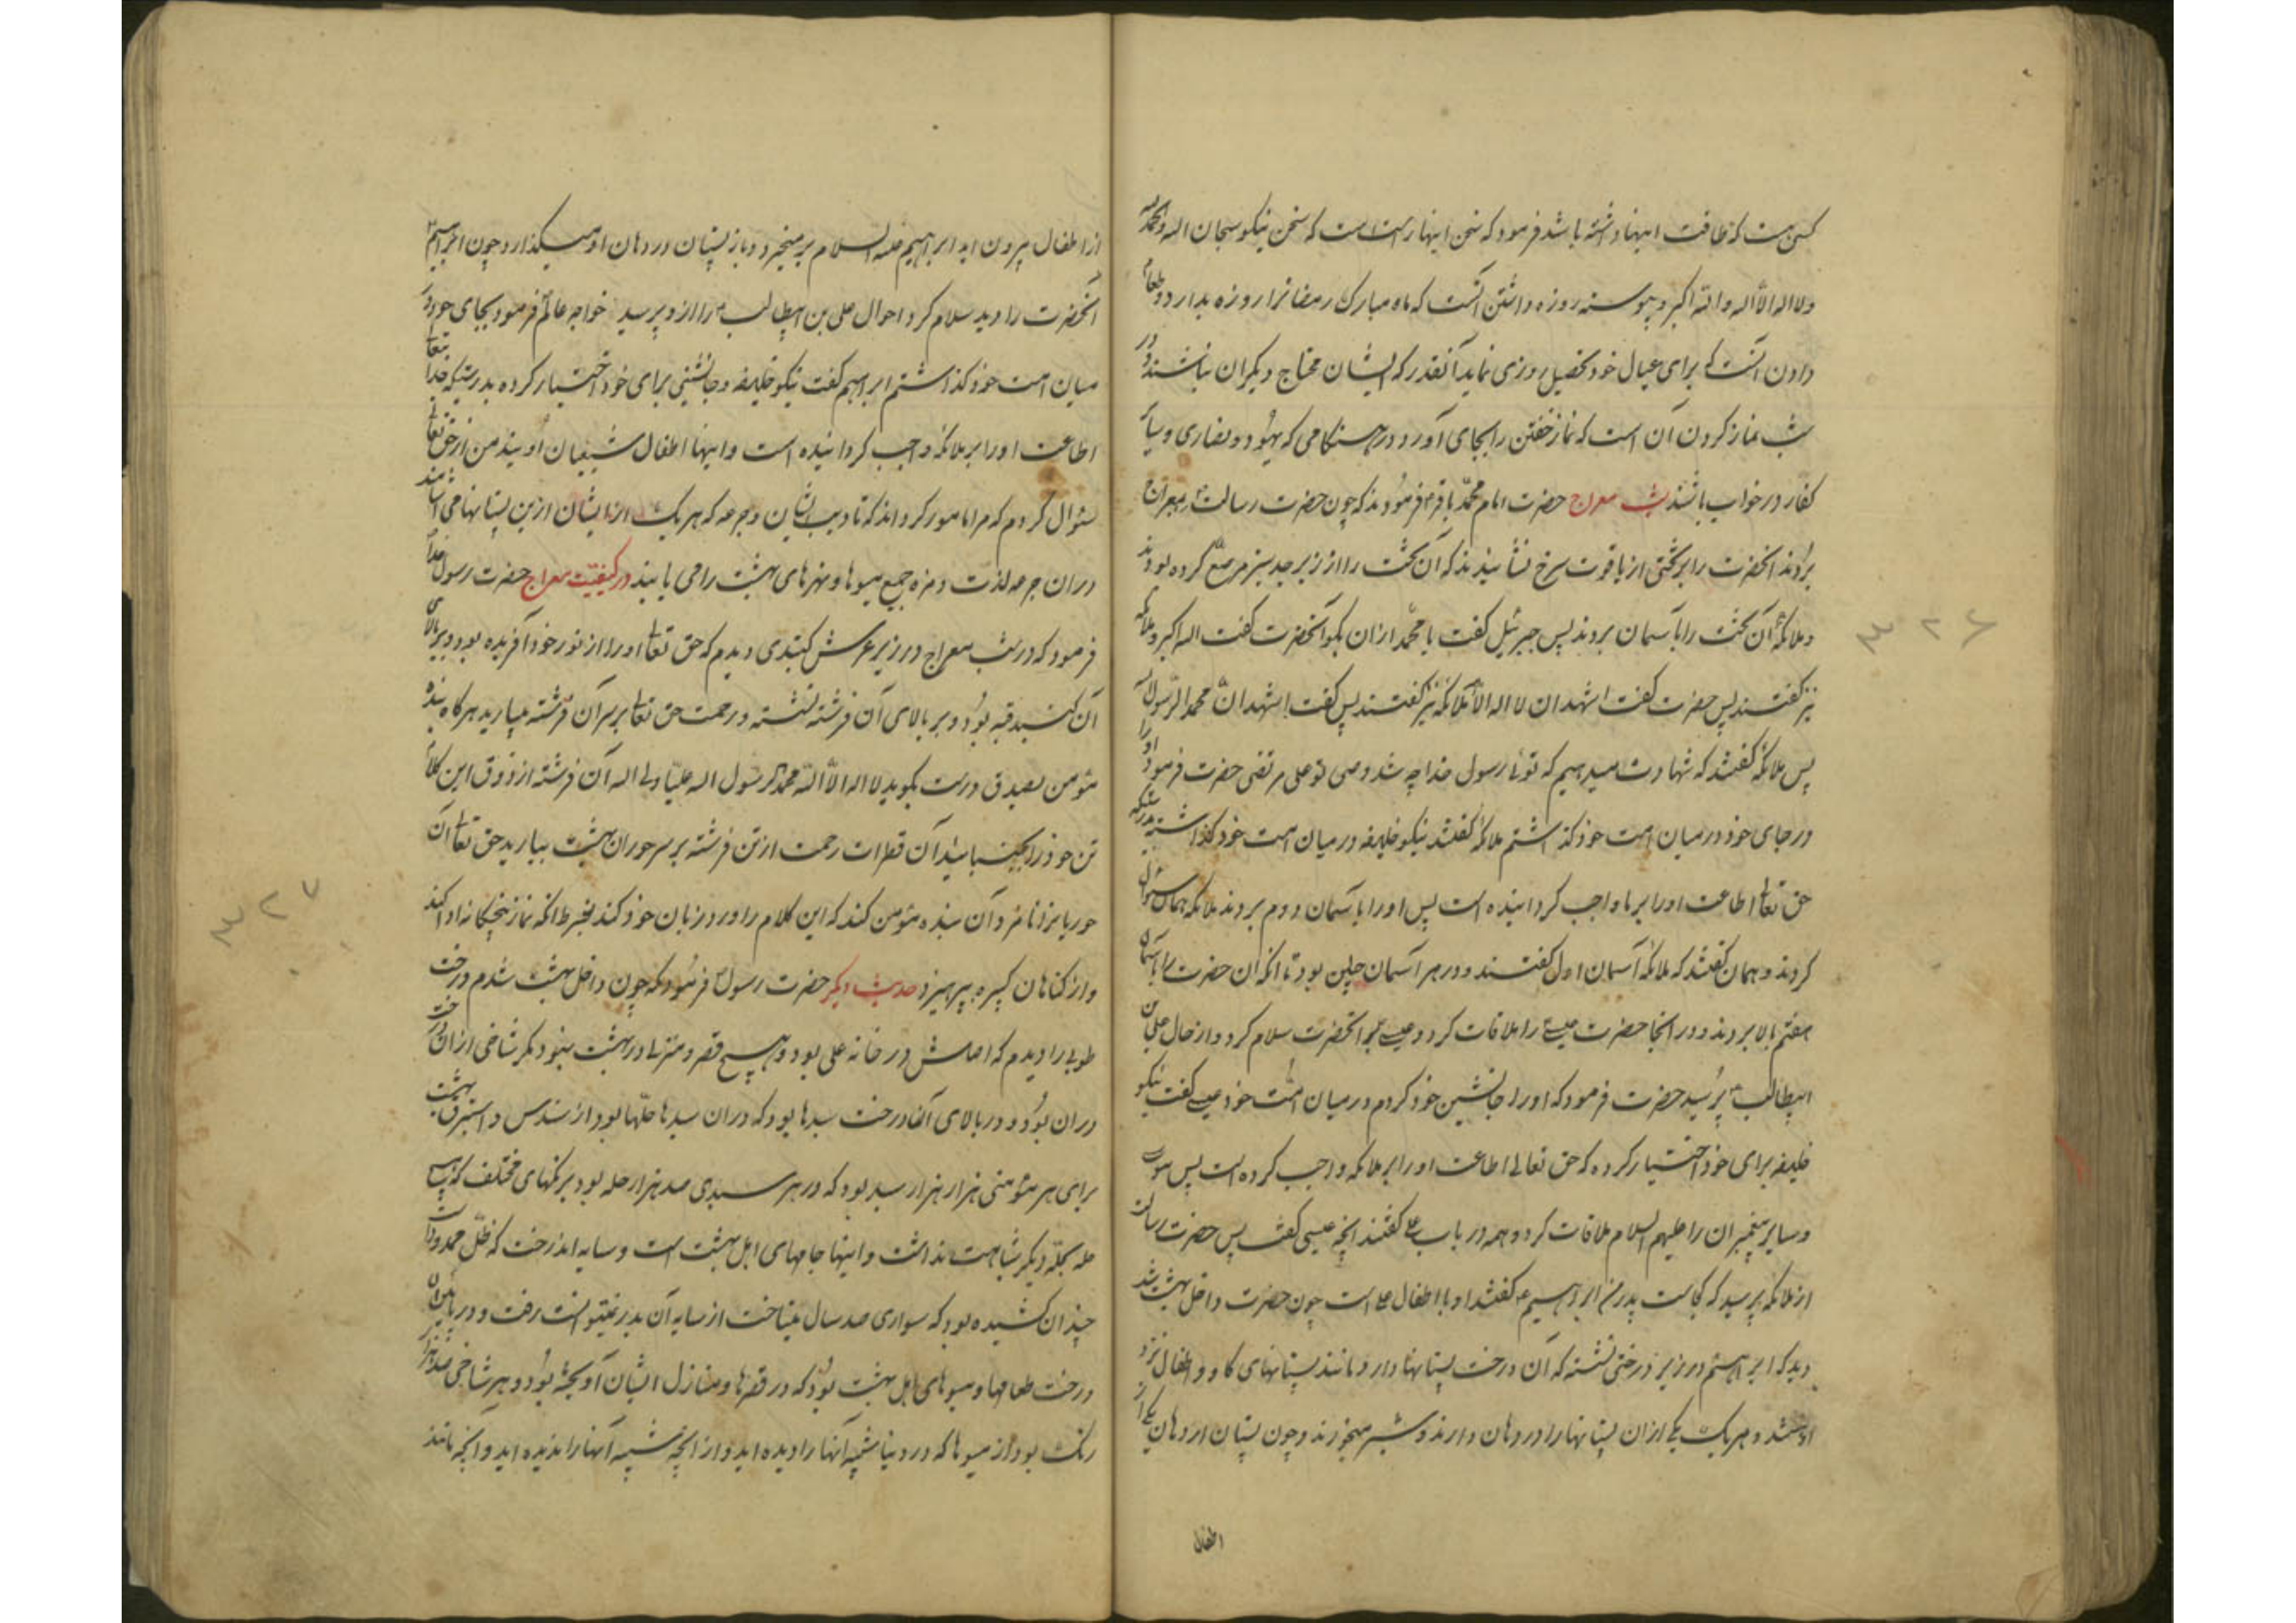 کسی هست که طاقت اینها داشته باشد فرمود که سخن اینها راست است که سخن نیکو سبحان الله والحمد لله
ولا اله الا الله والله اکبر و پیوسته روزه داشتن آنست که ماه مبارک رمضانرا روزه بدارد و طعام
دادن آنست که برای عیال خود تحصیل روزی نماید آنقدر که ایشان محتاج دیگران نباشند و در
شب نماز کردن آن است که نماز خفتن را بجای آورد در هنگامی که یهود و نصاری و سایر
کفار در خواب باشند شب معراج حضرت امام محمد باقر فرمودند که چون حضرت رسالت را بمعراج
بردند آنحضرت را بر تختی از یاقوت سرخ نشانیدند که آن تخت را از زبرجد سبز مرصع کرده بودند
و ملائکه آن تخت را بآسمان بردند پس جبرئیل گفت یا محمد اذان بگو آنحضرت گفت الله اکبر و ملائکه
نیز گفتند پس حضرت گفت اشهد ان لا اله الا الله ملائکه نیز گفتند پس گفت اشهد ان محمدا رسول الله
پس ملائکه گفتند که شهادت میدهیم که توئی رسول خدا چه شد وصی تو علی مرتضی حضرت فرمود او را
در جای خود در میان امت خود گذاشتم ملائکه گفتند نیکو خلیفه در میان امت خود گذاشتهٔ بدرستیکه
حق تعالی اطاعت او را بر ما واجب گردانیده است پس او را بآسمان دوم بردند ملائکه همان سئوال
کردند و همان گفتند که ملائکه آسمان اول گفتند و در هر آسمان چنین بود تا آنکه آن حضرت را بآسمان
هفتم بالا بردند و در آنجا حضرت عیسی را ملاقات کرد و عیسی بر آنحضرت سلام کرد و از حال علی بن
ابیطالب پرسید حضرت فرمود که او را جانشین خود کردم در میان امت خود عیسی گفت نیکو
خلیفه برای خود اختیار کرده که حق تعالی اطاعت او را بر ملائکه واجب کرده است پس موسی
و سایر پیغمبران را علیهم السلام ملاقات کرد و همه در باب علی گفتند آنچه عیسی گفت پس حضرت رسالت
از ملائکه پرسید که کجاست پدرم ابراهیم گفتند او با اطفال علی است چون حضرت داخل بهشت شد
دید که ابراهیم در زیر درختی نشسته که آن درخت پستانها دارد مانند پستانهای گاو و اطفال نزد
او هستند و هر یک یکی از ان پستانها را در دهان دارند و شیر میخورند و چون پستان از دهان یکی از
اطفال
از اطفال بیرون آید ابراهیم علیه السلام بر میخیزد و باز پستان در دهان او میگذارد و چون ابراهیم
آنحضرت را دید سلام کرد و احوال علی بن ابیطالب را از و پرسید خواجه عالم فرمود بجای خود در
میان امت خود گذاشتم ابراهیم گفت نیکو خلیفه و جانشینی برای خود اختیار کرده بدرستیکه خدا تعالی
اطاعت او را بر ملائکه واجب گردانیده است و اینها اطفال شیعیان اویند من از حق تعالی
سئوال کردم که مرا مامور گرداند که تادیب ایشان و جرعه که هر یک از ایشان ازین پستانها می آشامند
در ان جرعه لذت و مزه جمیع میوها و نهرهای بهشت را می یابند در کیفیت معراج حضرت رسول خدا
فرمود که در شب معراج در زیر عرش گنبدی دیدم که حق تعالی او را از نور خود آفریده بود و بر بالای
آن گنبد قبه بود و بر بالای آن فرشته نشسته و رحمت حق تعالی بر سر آن فرشته میبارید هر گاه بنده
مؤمن بصدق درست بگوید لا اله الا الله محمد رسول الله علیا ولی الله آن فرشته از ذوق این کلام
تن خود را بجنباند آن قطرات رحمت از تن فرشته بر سر حوران بهشت ببارید حق تعالی آن
حوریانرا نامزد آن بنده مؤمن کند که این کلام را ورد زبان خود کند بشرط آنکه نماز پنجگانه ادا کند
و از گناهان کبیره بپرهیزد حدیث دیگر حضرت رسول فرمود که چون داخل بهشت شدم درخت
طوبی را دیدم که اصلش در خانه علی بود و هیچ قصر و منزلی در بهشت نبود مگر شاخی از ان درخت
در ان بود و در بالای آن درخت سبدها بود که در ان سبدها حلها بود از سندس و استبرق بهشت
برای هر مؤمنی هزار هزار سبد بود که در هر سبدی صد هزار حله بود برنگهای مختلف که هیچ
حله بحله دیگر شباهت نداشت و اینها جامهای اهل بهشت است و سایه اندرخت که ظل ممدود است
چندان کشیده بود که سواری صد سال میتاخت از سایه آن بدر نمیتوانست رفت و در پائین ان
درخت طعامها و میوهای اهل بهشت بود که در قصرها و منازل ایشان آویخته بود و هر شاخی صد هزار
رنگ بود از میوها که در دنیا شبیه آنها را دیده اید و از آنچه شبیه آنها را ندیده اید و آنچه مانند
۳۲۶
۳۲۷